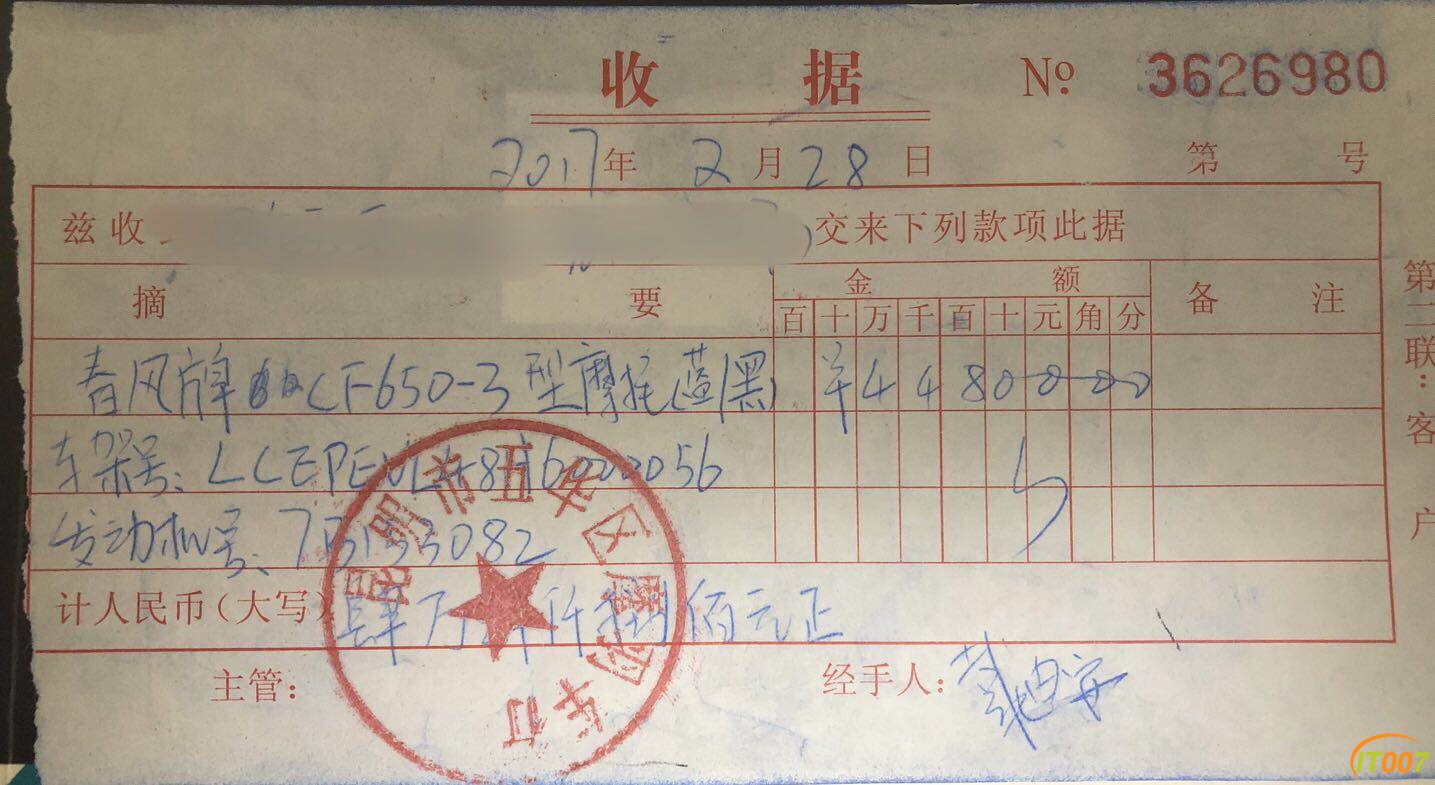 收 据 № 3626980
2017年 2月28日 第 号
兹收 交来下列款项此据
摘 要 金 额 备 注
百 十 万 千 百 十 元 角 分
春风牌 CF650-3型摩托(蓝/黑) ¥ 4 4 8 0 0 0 0
车架号: LCEPEVL
发动机号: 082
计人民币(大写) 肆万肆仟捌佰元正
主管: 经手人:
第二联:客户
昆明市五华区摩风车行
IT007